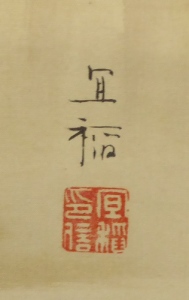 宜稲
宜稲
印信